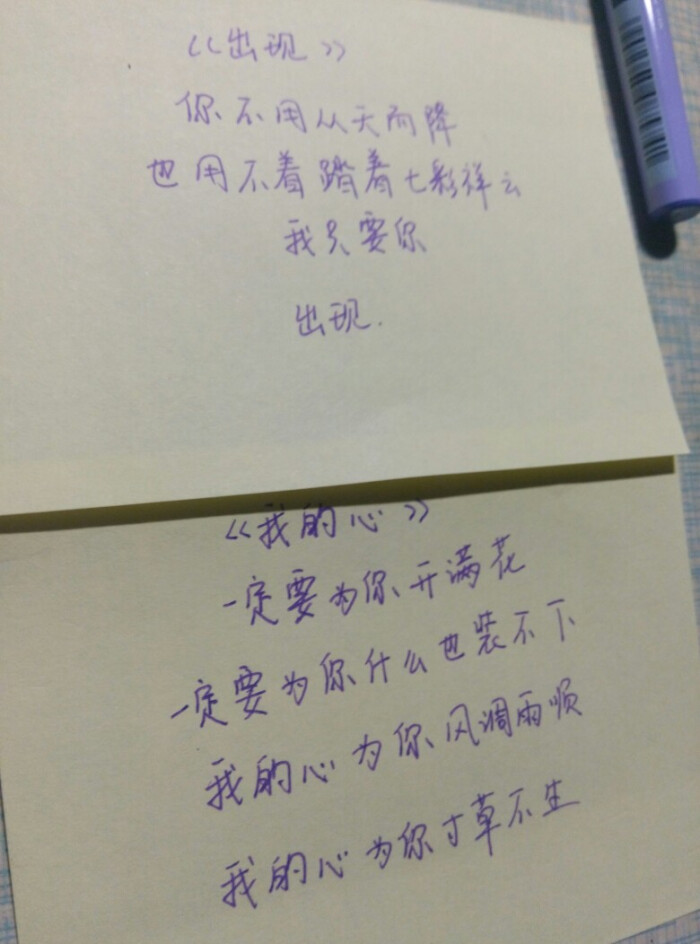 《出现》
你不用从天而降
也用不着踏着七彩祥云
我只要你
出现.
《我的心》
一定要为你开满花
一定要为你什么也装不下
我的心为你风调雨顺
我的心为你寸草不生